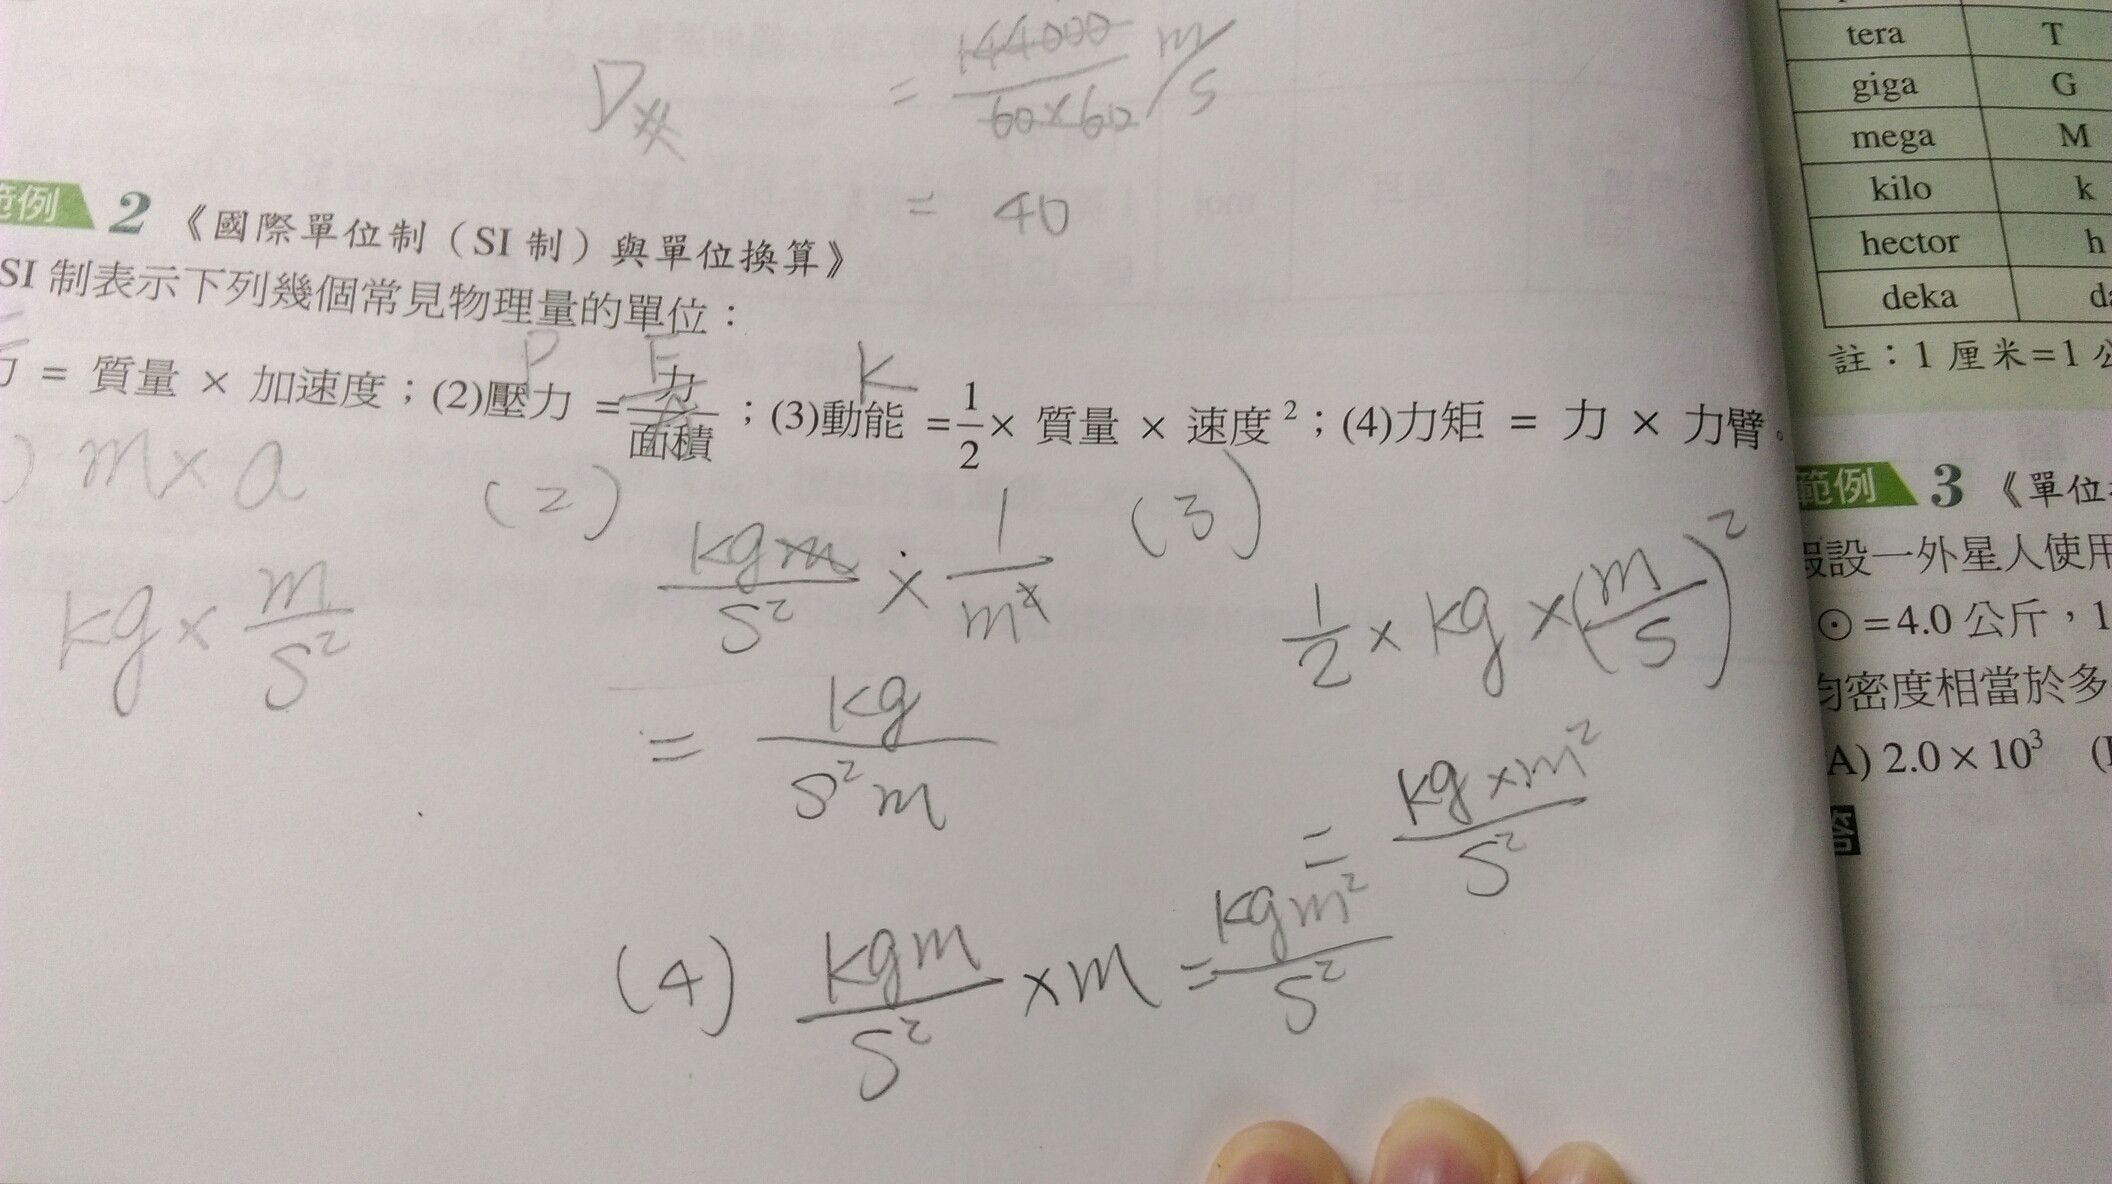 D
= 144000 / 60×60 m/s
= 40
範例 2 《國際單位制（SI 制）與單位換算》
SI 制表示下列幾個常見物理量的單位：
P F K
力 = 質量 × 加速度；(2)壓力 = 力/面積；(3)動能 = 1/2 × 質量 × 速度²；(4)力矩 = 力 × 力臂。
) m×a
kg × m/s²
(2) kgm/s² × 1/m²
= kg/s²m
(3) 1/2 × kg × (m/s)²
= kg×m²/s²
(4) kgm/s² ×m = kgm²/s²
tera T
giga G
mega M
kilo k
hector h
deka da
註：1 厘米=1 公
範例 3 《單位
假設一外星人使用
⊙=4.0 公斤，1
均密度相當於多
(A) 2.0 × 10³ (
答